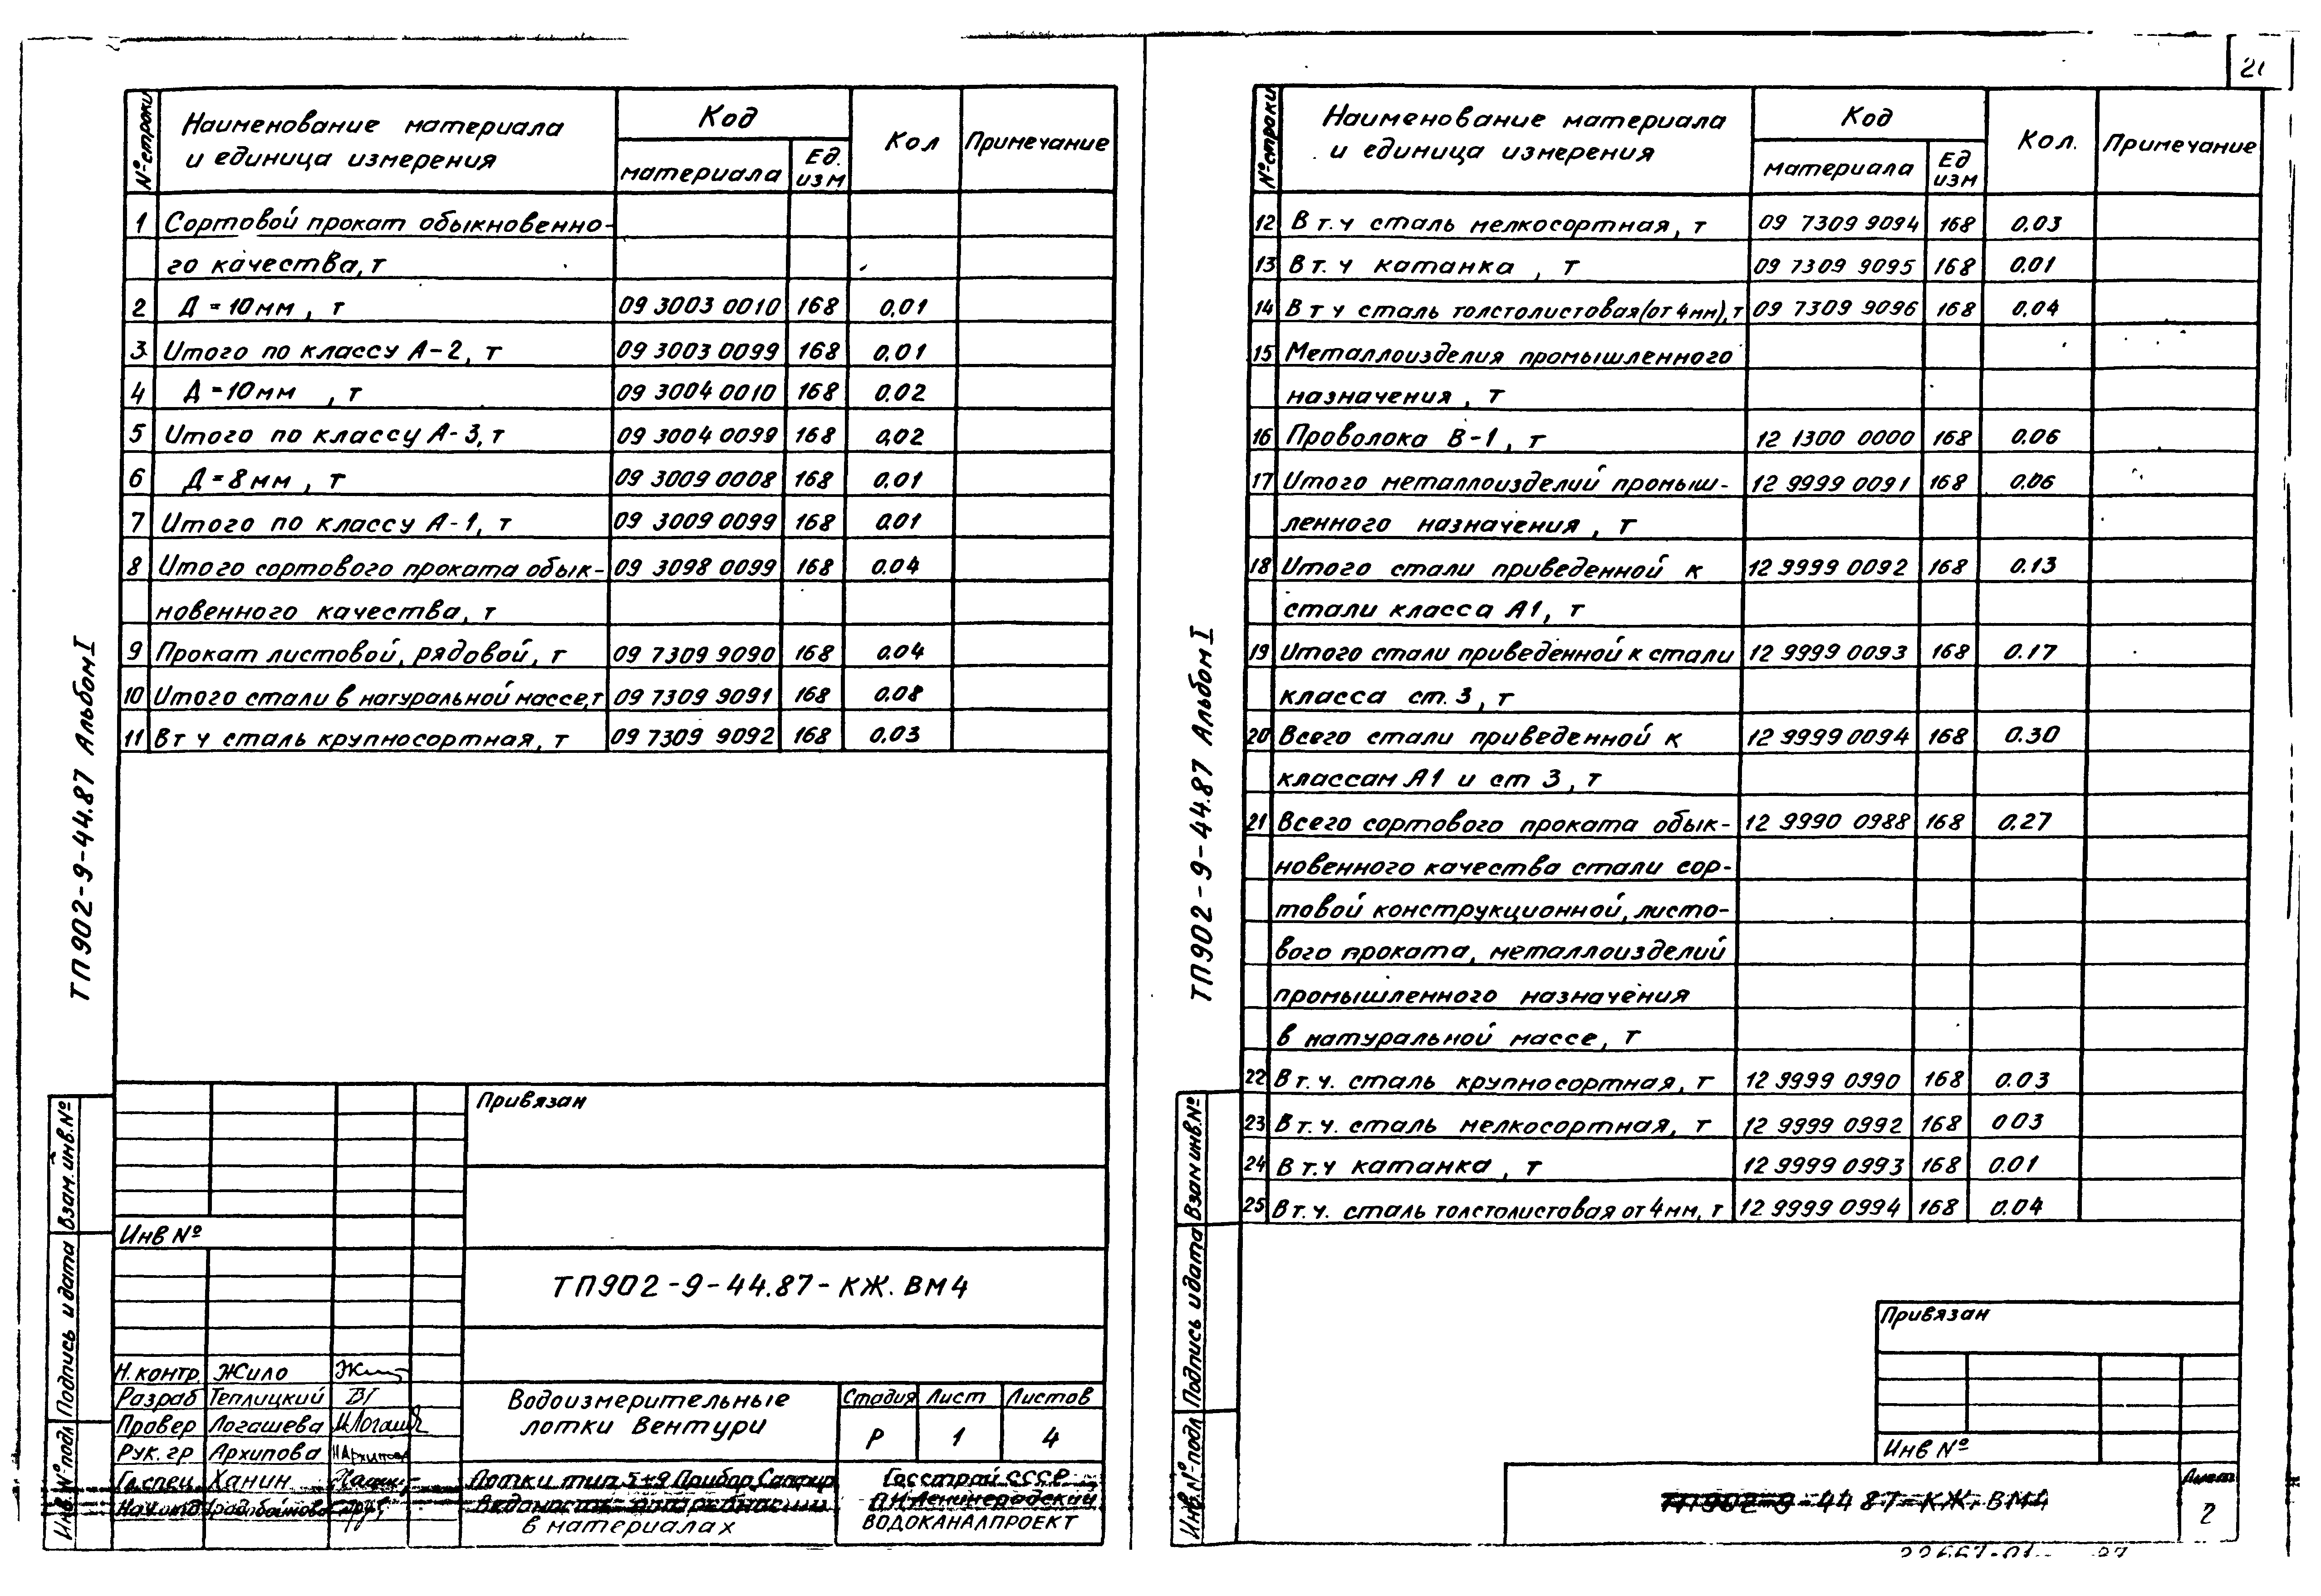 № строки
Наименование материала
и единица измерения
Код
материала
Ед.
изм
Кол
Примечание
1 Сортовой прокат обыкновенно-
го качества, т
2 Д = 10мм, т 09 3003 0010 168 0,01
3 Итого по классу А-2, т 09 3003 0099 168 0.01
4 Д = 10мм , т 09 3004 0010 168 0.02
5 Итого по классу А-3, т 09 3004 0099 168 0,02
6 Д = 8мм, т 09 3009 0008 168 0.01
7 Итого по классу А-1, т 09 3009 0099 168 0.01
8 Итого сортового проката обык- 09 3098 0099 168 0.04
новенного качества, т
9 Прокат листовой, рядовой, т 09 7309 9090 168 0.04
10 Итого стали в натуральной массе, т 09 7309 9091 168 0.08
11 Вт ч сталь крупносортная, т 09 7309 9092 168 0.03
ТП902-9-44.87 Альбом I
Взам. инв. №
Подпись и дата
Инв. № подл
Привязан
Инв №
ТП902-9-44.87-КЖ.ВМ4
Н. контр. Жило
Разраб Теплицкий
Провер Логашева
Рук. гр Архипова
Гл. спец Ханин
Нач. отд
Водоизмерительные
лотки Вентури
Стадия Лист Листов
Р 1 4
Лотки тип 5÷9 Прибор Сапфир
Ведомость потребности
в материалах
Госстрой СССР
Ленинградский
ВОДОКАНАЛПРОЕКТ
21
№ строки
Наименование материала
и единица измерения
Код
материала
Ед
изм
Кол.
Примечание
12 В т. ч сталь мелкосортная, т 09 7309 9094 168 0.03
13 В т. ч катанка , т 09 7309 9095 168 0.01
14 В т ч сталь толстолистовая (от 4мм), т 09 7309 9096 168 0.04
15 Металлоизделия промышленного
назначения, т
16 Проволока В-1, т 12 1300 0000 168 0.06
17 Итого металлоизделий промыш- 12 9999 0091 168 0.06
ленного назначения, т
18 Итого стали приведенной к 12 9999 0092 168 0.13
стали класса А1, т
19 Итого стали приведенной к стали 12 9999 0093 168 0.17
класса ст. 3, т
20 Всего стали приведенной к 12 9999 0094 168 0.30
классам А1 и ст 3, т
21 Всего сортового проката обык- 12 9990 0988 168 0.27
новенного качества стали сор-
товой конструкционной, листо-
вого проката, металлоизделий
промышленного назначения
в натуральной массе, т
22 В т. ч. сталь крупносортная, т 12 9999 0990 168 0.03
23 В т. ч. сталь мелкосортная, т 12 9999 0992 168 0 03
24 В т. ч катанка, т 12 9999 0993 168 0.01
25 В т. ч. сталь толстолистовая от 4мм, т 12 9999 0994 168 0.04
ТП902-9-44.87 Альбом I
Взам инв. №
Подпись и дата
Инв. № подл
Привязан
Инв №
ТП902-9-44 87-КЖ.ВМ4
Лист
2
22667-01